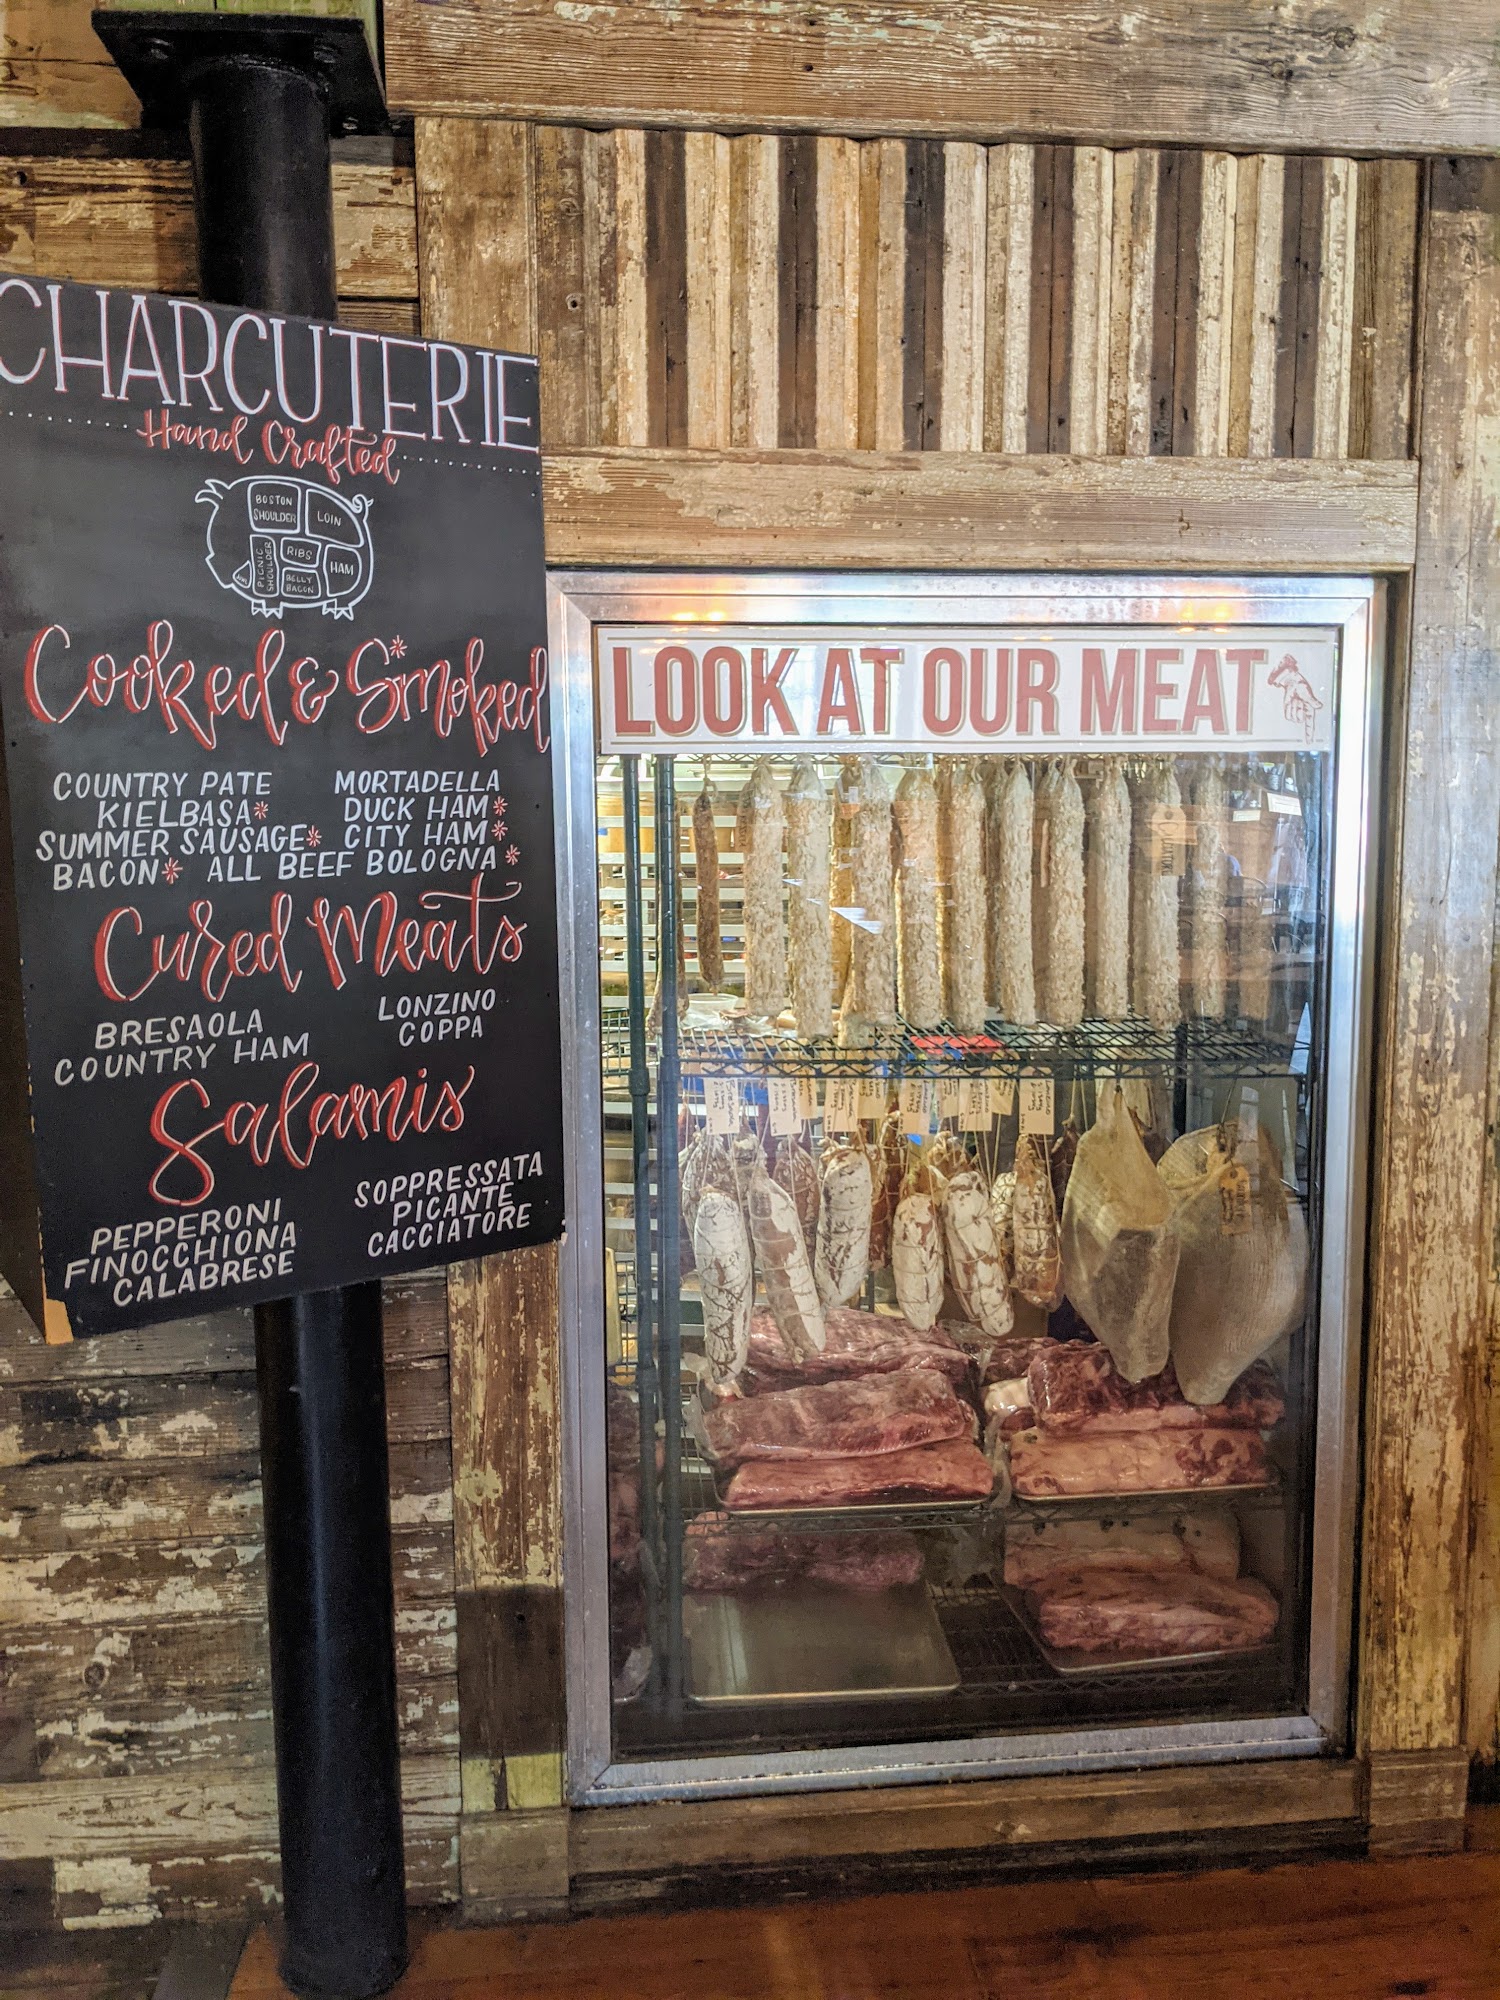 CHARCUTERIE
Hand Crafted
BOSTON
SHOULDER
LOIN
PICNIC
SHOULDER
RIBS
BELLY
BACON
HAM
Cooked & Smoked*
COUNTRY PATE
KIELBASA*
SUMMER SAUSAGE*
BACON*
MORTADELLA
DUCK HAM*
CITY HAM*
ALL BEEF BOLOGNA*
Cured Meats
BRESAOLA
COUNTRY HAM
LONZINO
COPPA
Salamis
PEPPERONI
FINOCCHIONA
CALABRESE
SOPPRESSATA
PICANTE
CACCIATORE
LOOK AT OUR MEAT